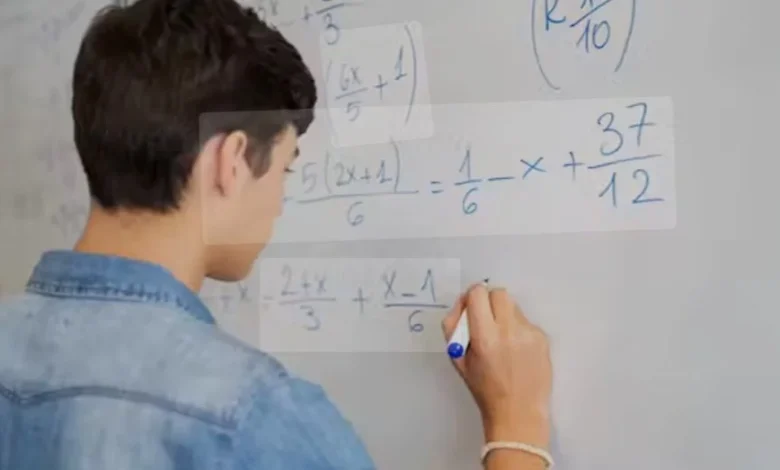 + —/3
(K —/10)
(6x/5 + 1)
- 5(2x+1)/6 = 1/6 - x + 37/12
+x = 2+x/3 + x-1/6